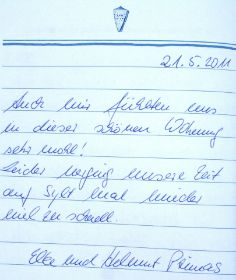 21.5.2011
Auch wir fühlten uns
in dieser schönen Wohnung
sehr wohl!
Leider verging unsere Zeit
auf Sylt mal wieder
viel zu schnell.
Elke und Helmut